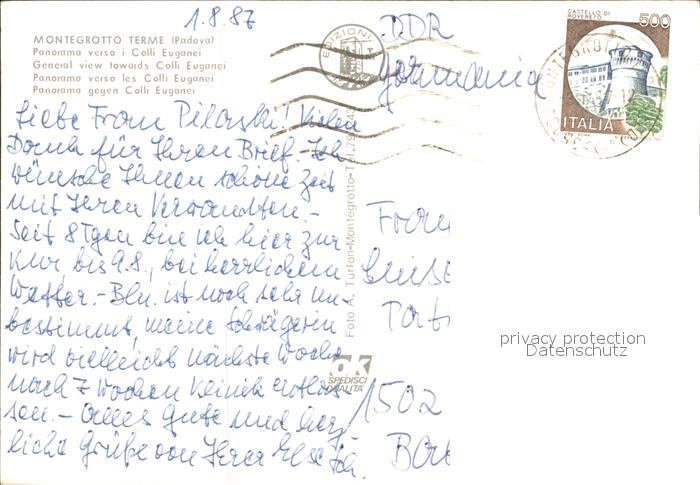 1.8.87
MONTEGROTTO TERME (Padova)
Panorama verso i Colli Euganei
General view towards Colli Euganei
Panorama verso les Colli Euganei
Panorama gegen Colli Euganei
Liebe Frau Pilaski! Vielen
Dank für Ihren Brief. Ich
wünsche Ihnen schöne Zeit
mit Ihren Verwandten.-
Seit 8 Tgen bin ich hier zur
Kur bis 9.8., bei herrlichem
Wetter.- Bln. ist noch sehr un-
bestimmt, meine Schwägerin
wird vielleicht nächste Woche
nach 7 Wochen Klinik entlas-
sen.- Alles Gute und herz-
liche Grüße von Ihrer Else Sch.
EDIZIONI
Foto A. Turlon-Montegrotto-Tel.
OK
SPEDISCI
QUALITÀ
CASTELLO DI
ROVERETO
500
ITALIA
DDR
Germania
Frau
Luise
1502
privacy protection
Datenschutz